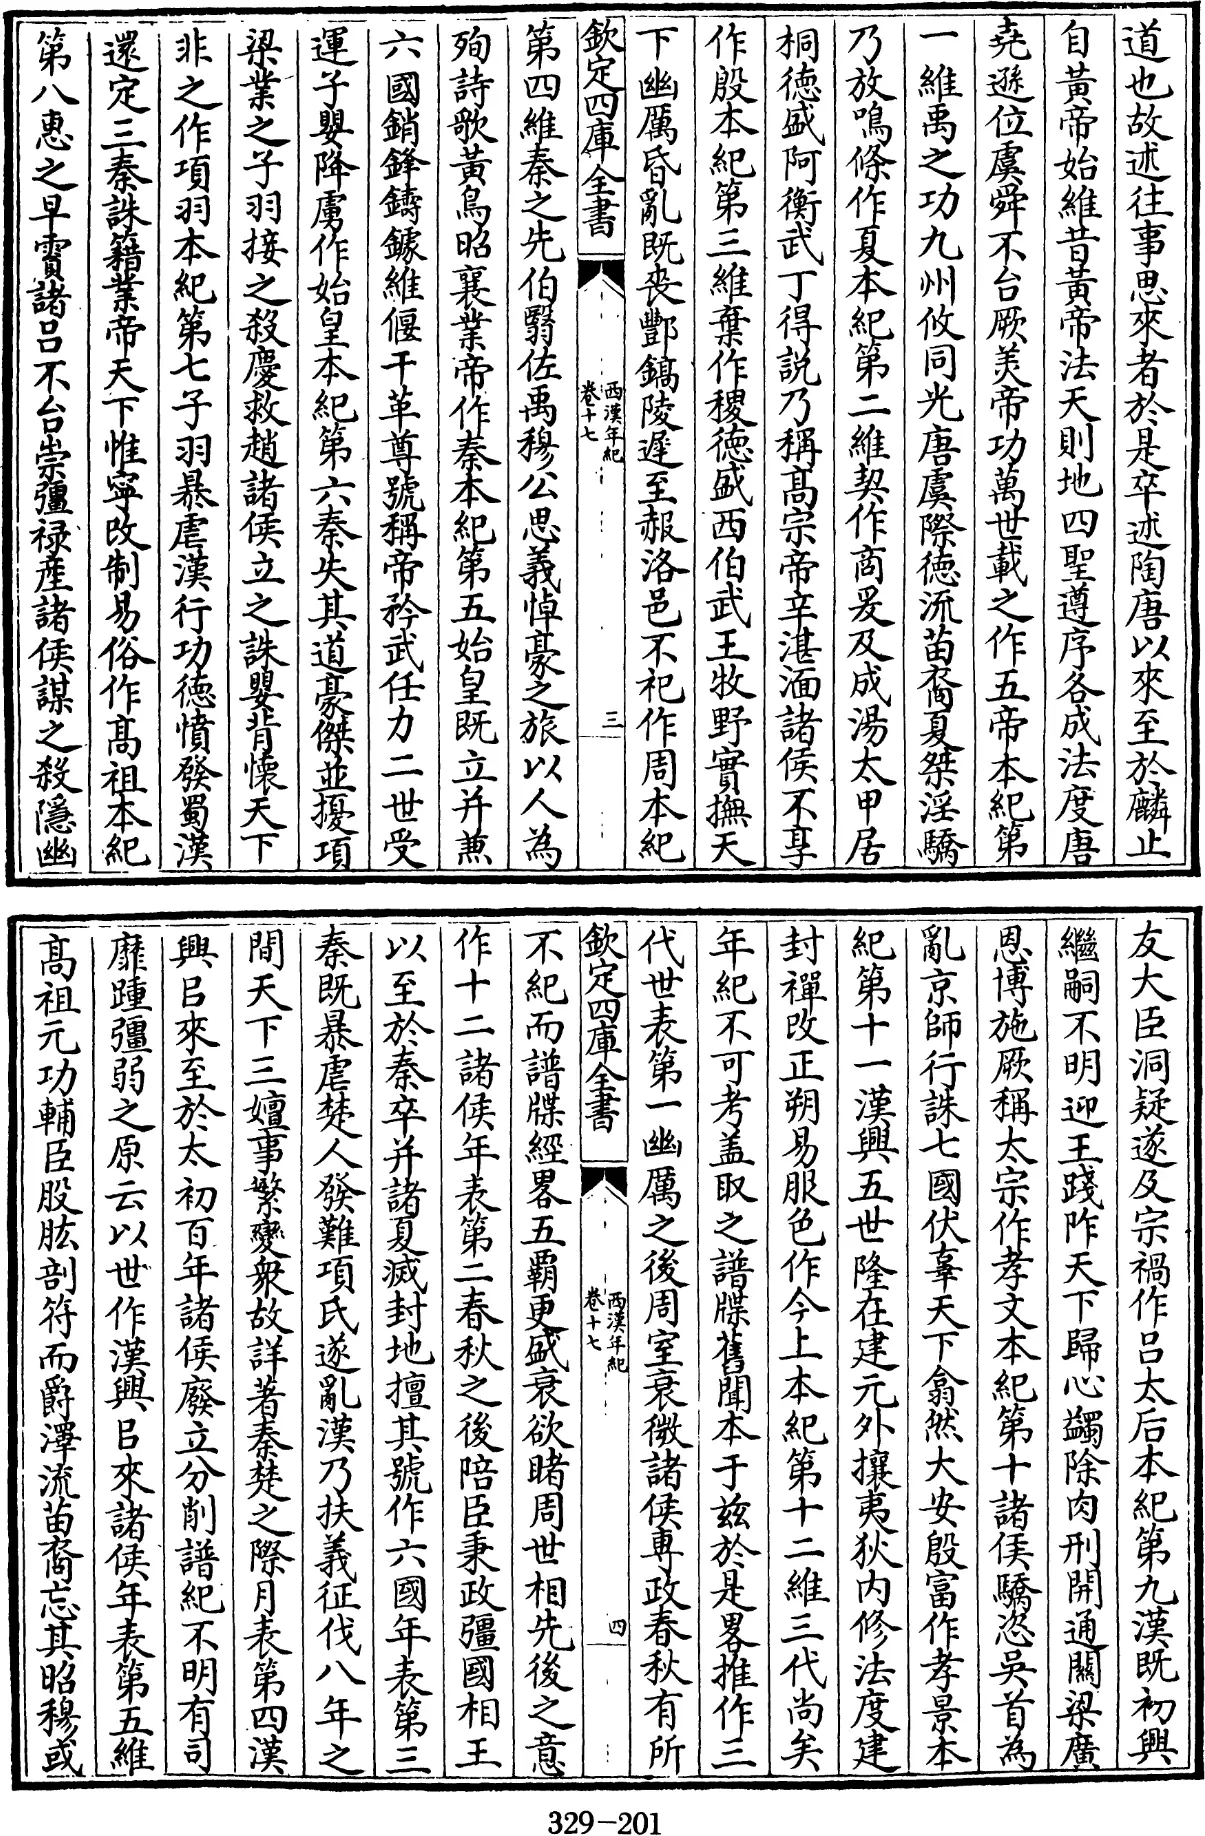 道也故述往事思來者於是卒述陶唐以來至於麟止
自黃帝始維昔黃帝法天則地四聖遵序各成法度唐
堯遜位虞舜不台厥美帝功萬世載之作五帝本紀第
一維禹之功九州攸同光唐虞際德流苗裔夏桀淫驕
乃放鳴條作夏本紀第二維契作商爰及成湯太甲居
桐德盛阿衡武丁得說乃稱高宗帝辛湛湎諸侯不享
作殷本紀第三維棄作稷德盛西伯武王牧野實撫天
下幽厲昏亂既喪酆鎬陵遲至赧洛邑不祀作周本紀
欽定四庫全書
西漢年紀
卷十七
三
第四維秦之先伯翳佐禹穆公思義悼豪之旅以人為
殉詩歌黃鳥昭襄業帝作秦本紀第五始皇既立并兼
六國銷鋒鑄鐻維偃干革尊號稱帝矜武任力二世受
運子嬰降虜作始皇本紀第六秦失其道豪傑並擾項
梁業之子羽接之殺慶救趙諸侯立之誅嬰背懷天下
非之作項羽本紀第七子羽暴虐漢行功德憤發蜀漢
還定三秦誅籍業帝天下惟寧改制易俗作髙祖本紀
第八惠之早霣諸吕不台崇彊禄產諸侯謀之殺隱幽
友大臣洞疑遂及宗禍作吕太后本紀第九漢既初興
繼嗣不明迎王踐阼天下歸心蠲除肉刑開通關梁廣
恩博施厥稱太宗作孝文本紀第十諸侯驕恣吳首為
亂京師行誅七國伏辜天下翕然大安殷富作孝景本
紀第十一漢興五世隆在建元外攘夷狄内修法度建
封禪改正朔易服色作今上本紀第十二維三代尚矣
年紀不可考盖取之譜牒舊聞本于兹於是畧推作三
代世表第一幽厲之後周室衰微諸侯專政春秋有所
欽定四庫全書
西漢年紀
卷十七
四
不紀而譜牒經畧五霸更盛衰欲睹周世相先後之意
作十二諸侯年表第二春秋之後陪臣秉政彊國相王
以至於秦卒并諸夏滅封地擅其號作六國年表第三
秦既暴虐楚人發難項氏遂亂漢乃扶義征伐八年之
間天下三嬗事繁變衆故詳著秦楚之際月表第四漢
興㠯來至於太初百年諸侯廢立分削譜紀不明有司
靡踵彊弱之原云以世作漢興㠯來諸侯年表第五維
髙祖元功輔臣股肱剖符而爵澤流苗裔忘其昭穆或
329-201